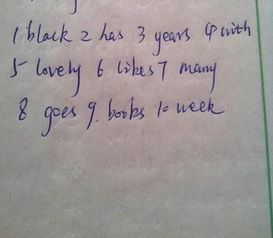 1 black 2 has 3 years 4 with
5 lovely 6 likes 7 many
8 goes 9. books 10 week